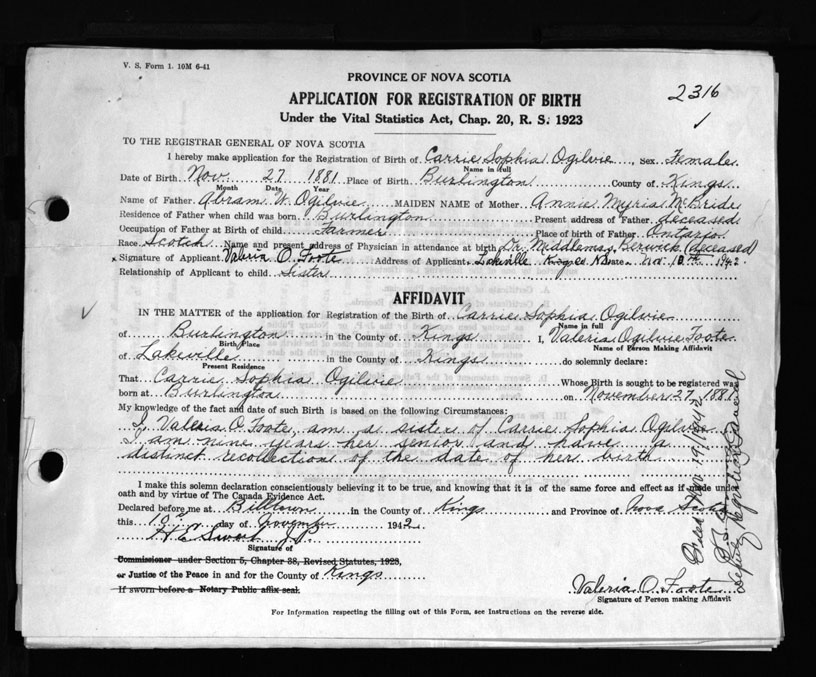 V. S. Form 1. 10M 6-41
PROVINCE OF NOVA SCOTIA
2316
APPLICATION FOR REGISTRATION OF BIRTH
1
Under the Vital Statistics Act, Chap. 20, R. S. 1923
TO THE REGISTRAR GENERAL OF NOVA SCOTIA
I hereby make application for the Registration of Birth of Carrie Sophia Ogilvie, sex Female
Name in full
Date of Birth Nov 27 1881 Place of Birth Burlington County of Kings
Month Date Year
Name of Father Abram W. Ogilvie MAIDEN NAME of Mother Annie Myria McBride
Residence of Father when child was born Burlington Present address of Father deceased
Occupation of Father at Birth of child Farmer Place of birth of Father Ontario
Race Scotch Name and present address of Physician in attendance at birth Dr. Middlemas Berwick (deceased)
Signature of Applicant Valeria O. Foote Address of Applicant Lakeville Kings Co NS Date Nov. 10th 1942
Relationship of Applicant to child Sister
AFFIDAVIT
IN THE MATTER of the application for Registration of the Birth of Carrie Sophia Ogilvie
Name in full
of Burlington in the County of Kings I, Valeria Ogilvie Foote
Birth Place Name of Person Making Affidavit
of Lakeville in the County of Kings do solemnly declare:
Present Residence
That Carrie Sophia Ogilvie Whose Birth is sought to be registered was
born at Burlington on November 27, 1881
My knowledge of the fact and date of such Birth is based on the following Circumstances:
I, Valeria O. Foote, am a sister of Carrie Sophia Ogilvie
I am nine years her senior and have a
distinct recollection of the date of her birth
I make this solemn declaration conscientiously believing it to be true, and knowing that it is of the same force and effect as if made under
oath and by virtue of The Canada Evidence Act.
Declared before me at Billtown in the County of Kings and Province of Nova Scotia
this 10th day of November 1942
H E Sword J.P.
Signature of
Commissioner under Section 5, Chapter 38, Revised Statutes, 1923,
or Justice of the Peace in and for the County of Kings
If sworn before a Notary Public affix seal.
Valeria O. Foote
Signature of Person making Affidavit
For Information respecting the filling out of this Form, see Instructions on the reverse side.
Nov. 19/1942
Deputy Registrar General